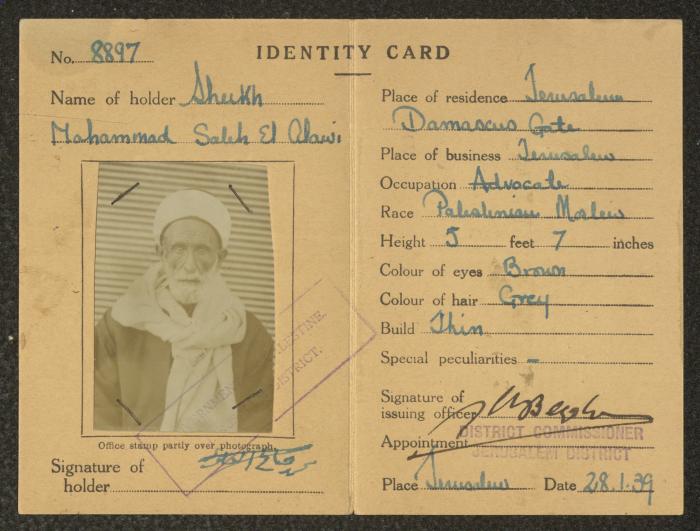 IDENTITY CARD
No. 8897
Name of holder Sheikh
Mohammad Saleh El Alawi
Office stamp partly over photograph.
Signature of
holder
PALESTINE.
DISTRICT.
Place of residence Jerusalem
Damascus Gate
Place of business Jerusalem
Occupation Advocate
Race Palestinian Moslem
Height 5 feet 7 inches
Colour of eyes Brown
Colour of hair Grey
Build Thin
Special peculiarities -
Signature of
issuing officer
Appointment DISTRICT COMMISSIONER
JERUSALEM DISTRICT
Place Jerusalem Date 28.1.39